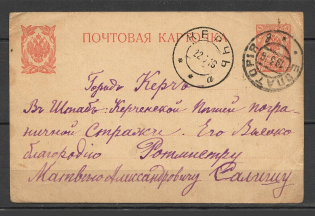 ПОЧТОВАЯ КАРТОЧКА
КЕРЧЬ
ЕВПАТОРІЯ
Городъ Керчь
Въ Штабъ Керченской Пѣшей погра-
ничной Стражи. Его Высоко-
благородію Ротмистру
Матвѣю Александровичу